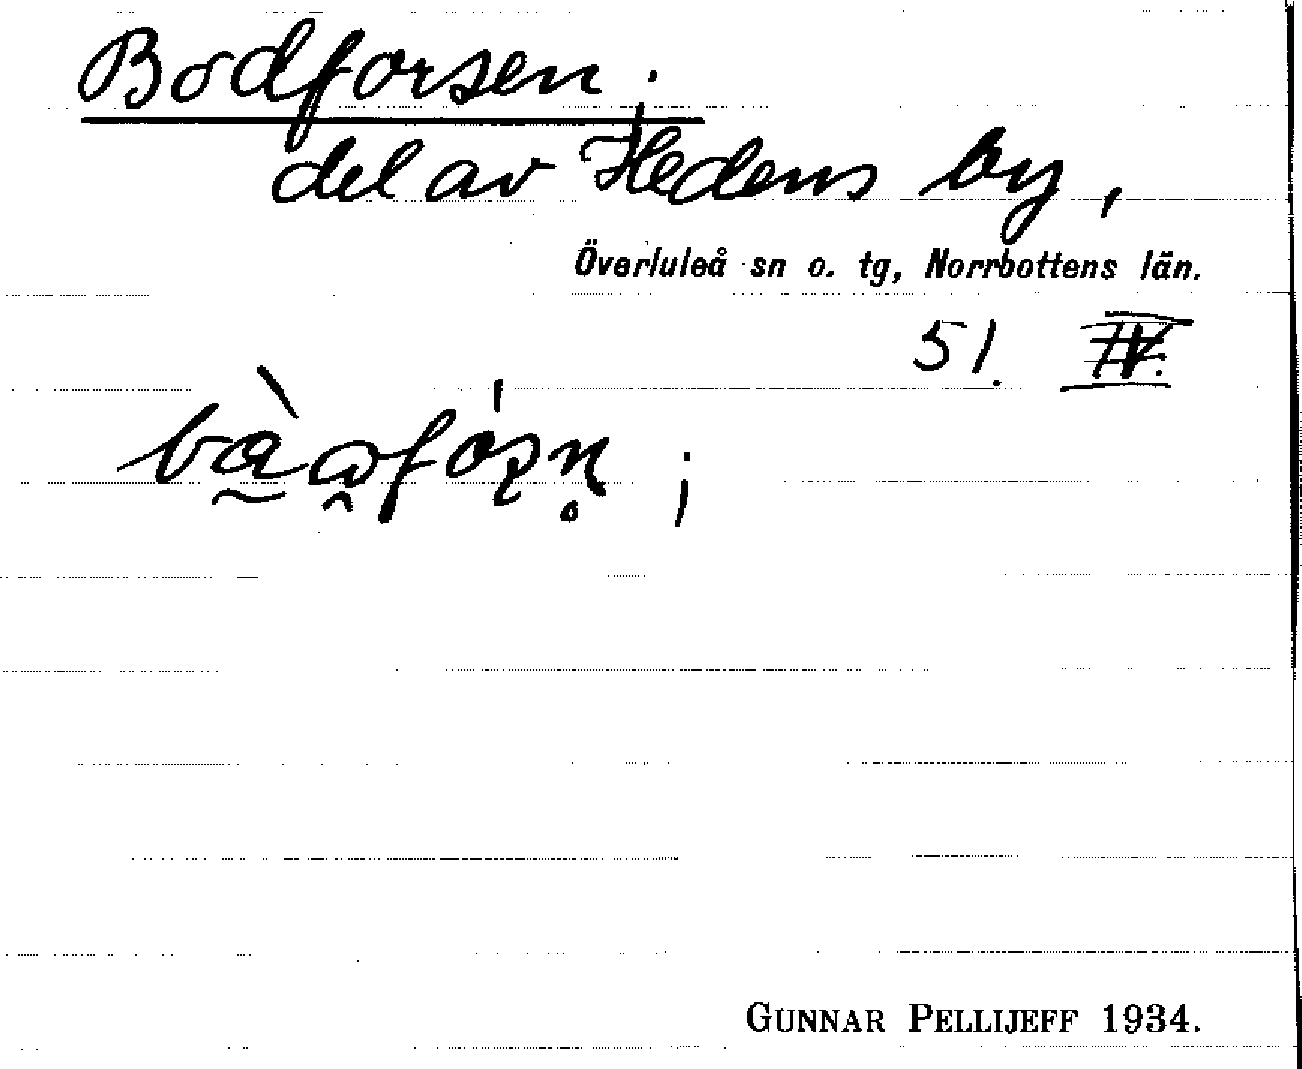 Bodforsen.
del av Hedens by,
Överluleå sn o. tg, Norrbottens län.
51.
GUNNAR PELLIJEFF 1934.